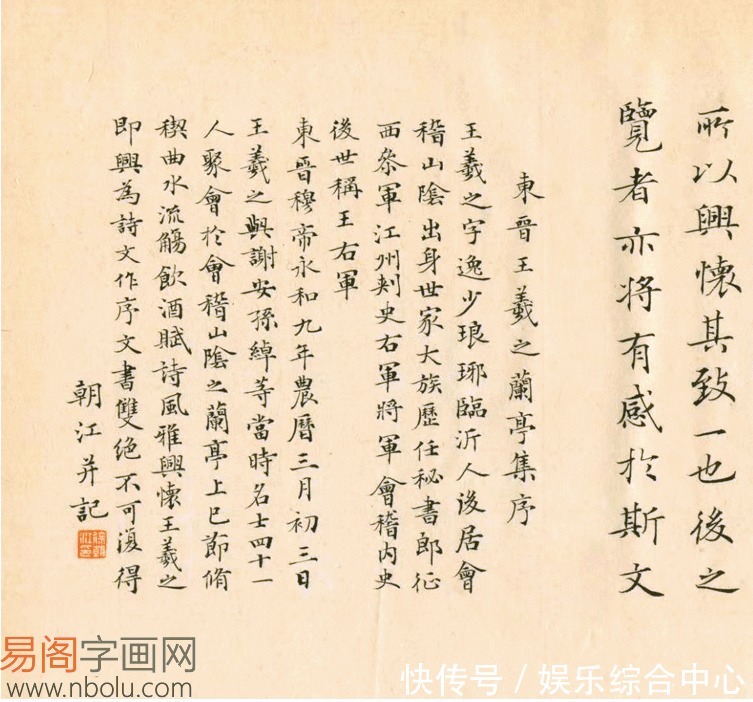 所以興懷其致一也後之
覽者亦将有感於斯文
東晋王羲之蘭亭集序
王羲之字逸少琅琊臨沂人後居會
稽山陰出身世家大族歷任秘書郎征
西叅軍江州刺史右軍將軍會稽内史
後世稱王右軍
東晋穆帝永和九年農曆三月初三日
王羲之與謝安孫綽等當時名士四十一
人聚會於會稽山陰之蘭亭上巳節脩
稧曲水流觴飲酒賦詩風雅興懷王羲之
即興為詩文作序文書雙絶不可復得
朝江并記
易阁字画网
www.nbolu.com
快传号/娱乐综合中心